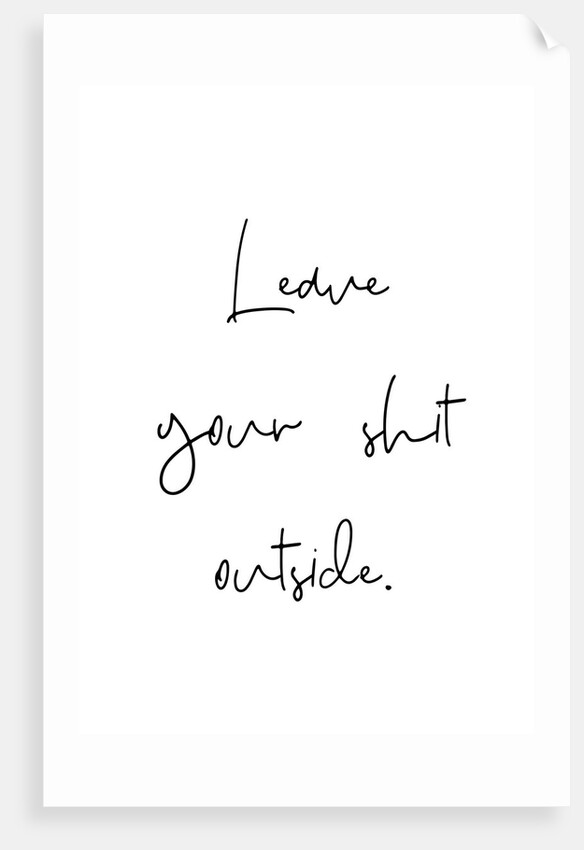 Leave
your shit
outside.